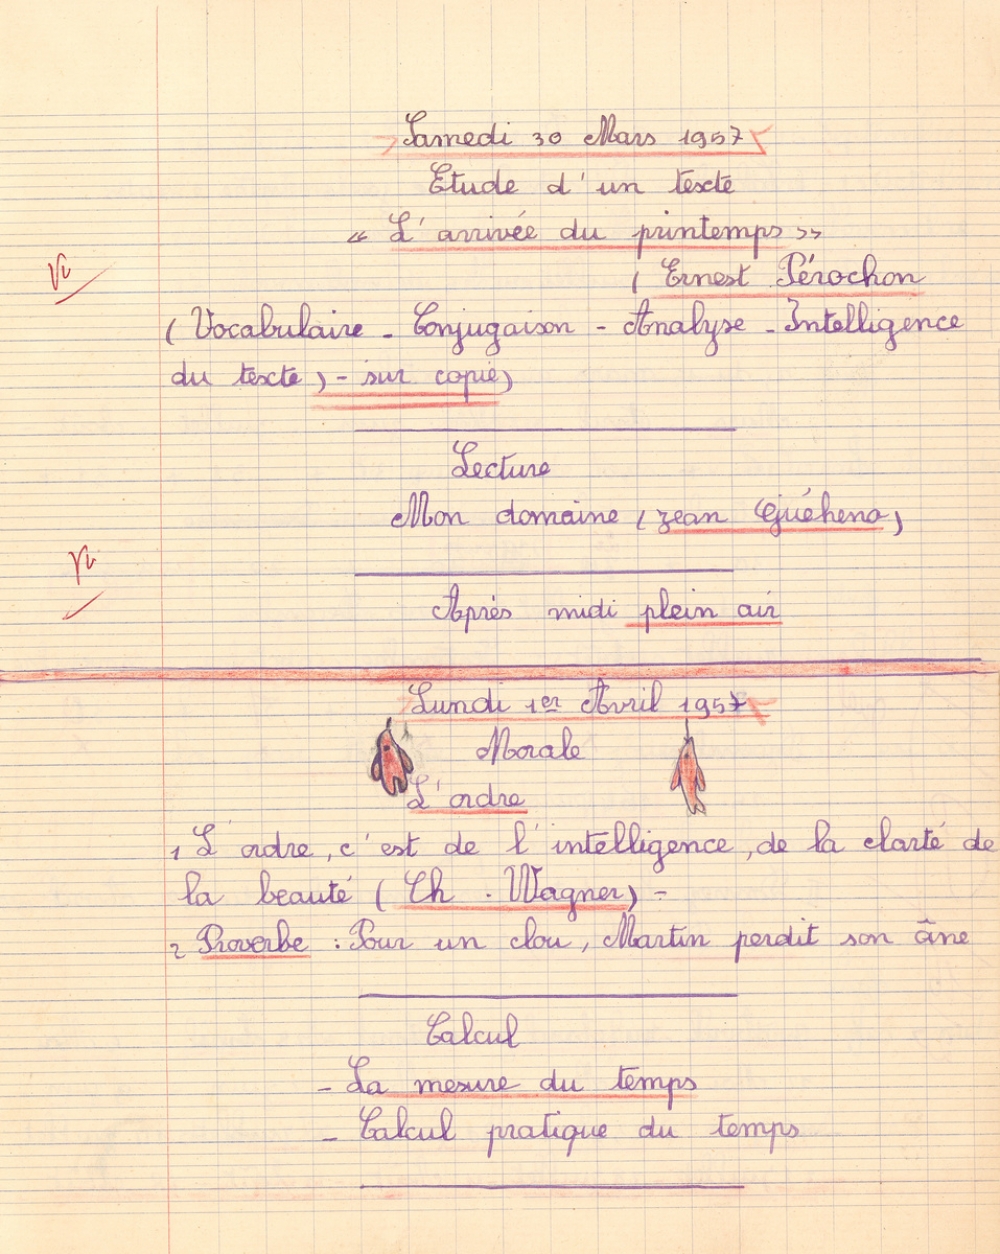 Samedi 30 Mars 1957
Etude d'un texte
« L'arrivée du printemps »
Vu
( Ernest Pérochon
( Vocabulaire - Conjugaison - Analyse - Intelligence
du texte ) - sur copie)
Lecture
Mon domaine ( Jean Guéheno )
Vu
Après midi plein air
Lundi 1er Avril 1957
Morale
L'ordre
1 L'ordre, c'est de l'intelligence, de la clarté de
la beauté ( Ch. Wagner) -
2 Proverbe : Pour un clou, Martin perdit son âne
Calcul
- La mesure du temps
- Calcul pratique du temps